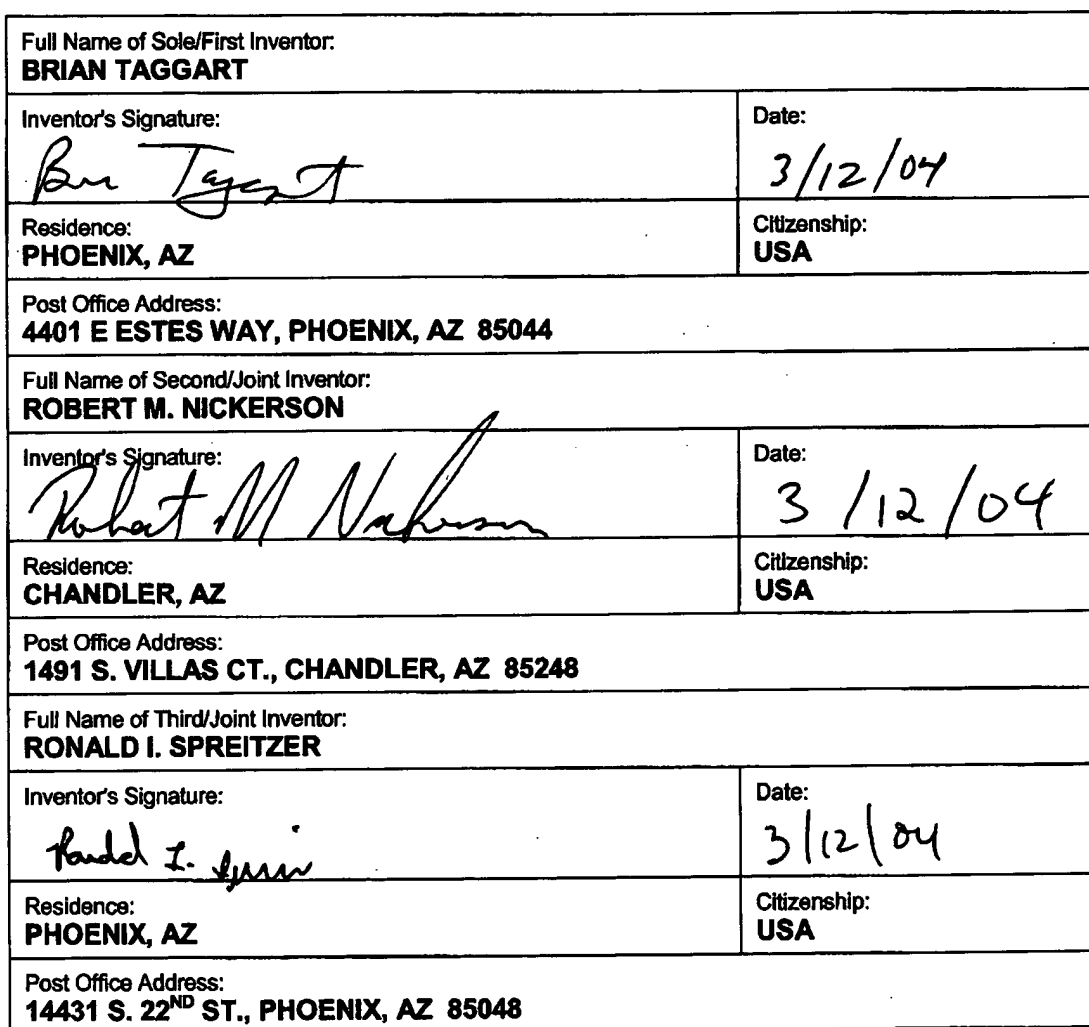 Full Name of Sole/First Inventor:
BRIAN TAGGART
Inventor's Signature:
Date:
3/12/04
Residence:
PHOENIX, AZ
Citizenship:
USA
Post Office Address:
4401 E ESTES WAY, PHOENIX, AZ 85044
Full Name of Second/Joint Inventor:
ROBERT M. NICKERSON
Inventor's Signature:
Robert M Nickerson
Date:
3/12/04
Residence:
CHANDLER, AZ
Citizenship:
USA
Post Office Address:
1491 S. VILLAS CT., CHANDLER, AZ 85248
Full Name of Third/Joint Inventor:
RONALD I. SPREITZER
Inventor's Signature:
Date:
3/12/04
Residence:
PHOENIX, AZ
Citizenship:
USA
Post Office Address:
14431 S. 22ND ST., PHOENIX, AZ 85048